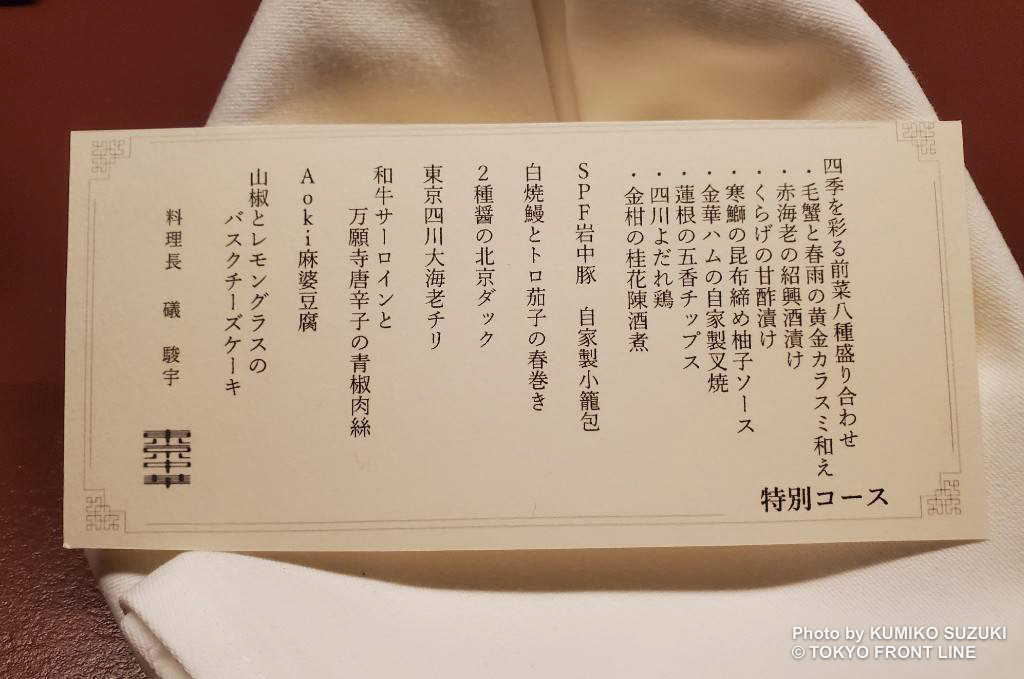 四季を彩る前菜八種盛り合わせ
・毛蟹と春雨の黄金カラスミ和え
・赤海老の紹興酒漬け
・くらげの甘酢漬け
・寒鰤の昆布締め柚子ソース
・金華ハムの自家製叉焼
・蓮根の五香チップス
・四川よだれ鶏
・金柑の桂花陳酒煮
SPF岩中豚　自家製小籠包
白焼鰻とトロ茄子の春巻き
2種醤の北京ダック
東京四川大海老チリ
和牛サーロインと
万願寺唐辛子の青椒肉絲
Aoki麻婆豆腐
山椒とレモングラスの
バスクチーズケーキ
料理長　礒　駿宇
特別コース
Photo by KUMIKO SUZUKI
© TOKYO FRONT LINE